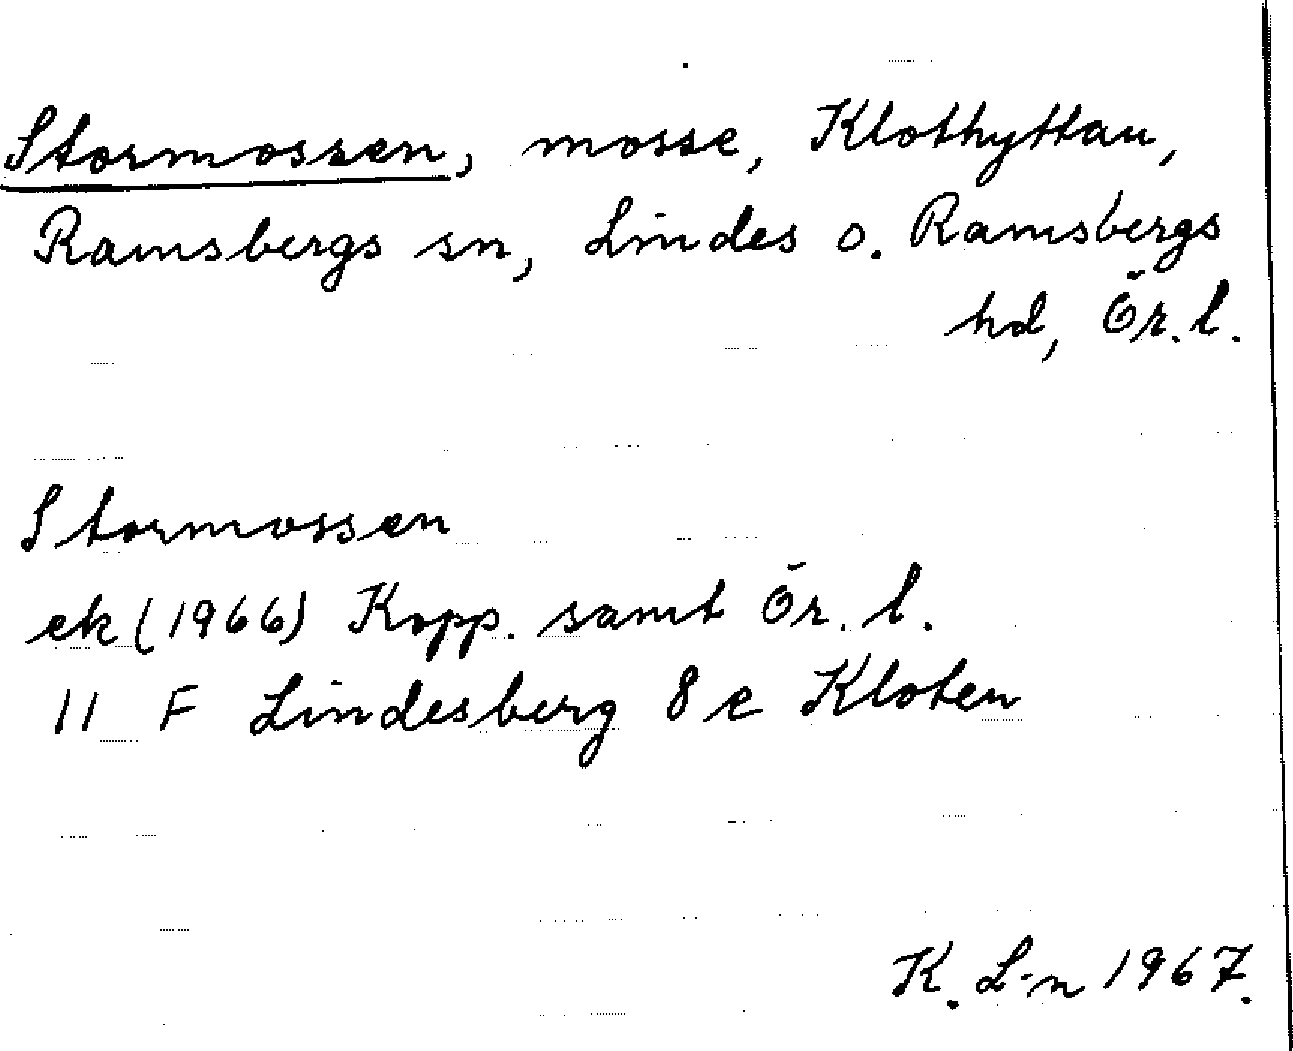 Stormossen, mosse, Klothyttan,
Ramsbergs sn, Lindes o. Ramsbergs
hd, Ör. l.
Stormossen
ek (1966) Kopp. samt Ör. l.
11 F Lindesberg 8 e Kloten
K. L-n 1967.